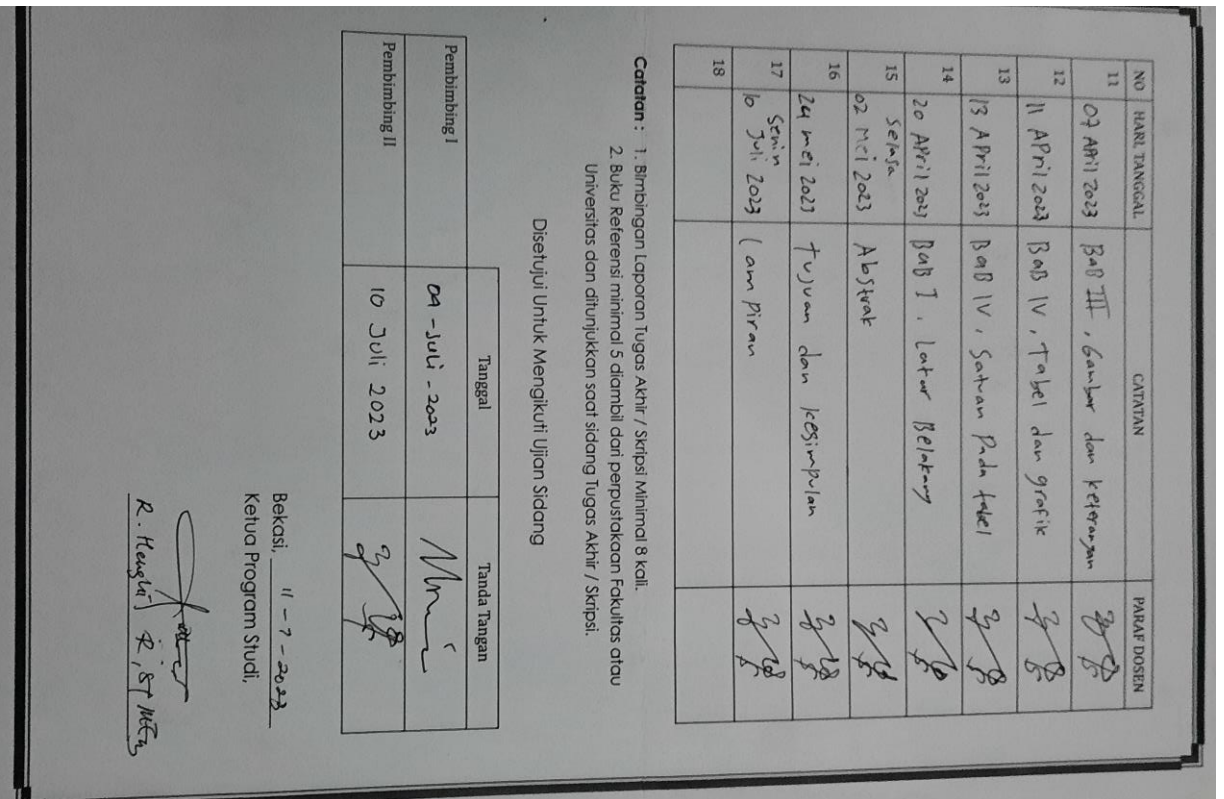 NO HARI, TANGGAL CATATAN PARAF DOSEN
11 07 April 2023 BaB III, Gambar dan keterangan
12 11 APril 2023 BaB IV, Tabel dan grafik
13 13 APril 2023 BaB IV, Satuan Pada tabel
14 20 APril 2023 BaB I, Latar Belakang
15 Selasa
02 Mei 2023 Abstrak
16 24 mei 2023 tujuan dan kesimpulan
17 Senin
10 Juli 2023 Lampiran
18
Catatan : 1. Bimbingan Laporan Tugas Akhir / Skripsi Minimal 8 kali.
2. Buku Referensi minimal 5 diambil dari perpustakaan Fakultas atau
Universitas dan ditunjukkan saat sidang Tugas Akhir / Skripsi.
Disetujui Untuk Mengikuti Ujian Sidang
Tanggal Tanda Tangan
Pembimbing I -Juli-2023
Pembimbing II 10 Juli 2023
Bekasi, 11-7-2023
Ketua Program Studi,
R. , ST